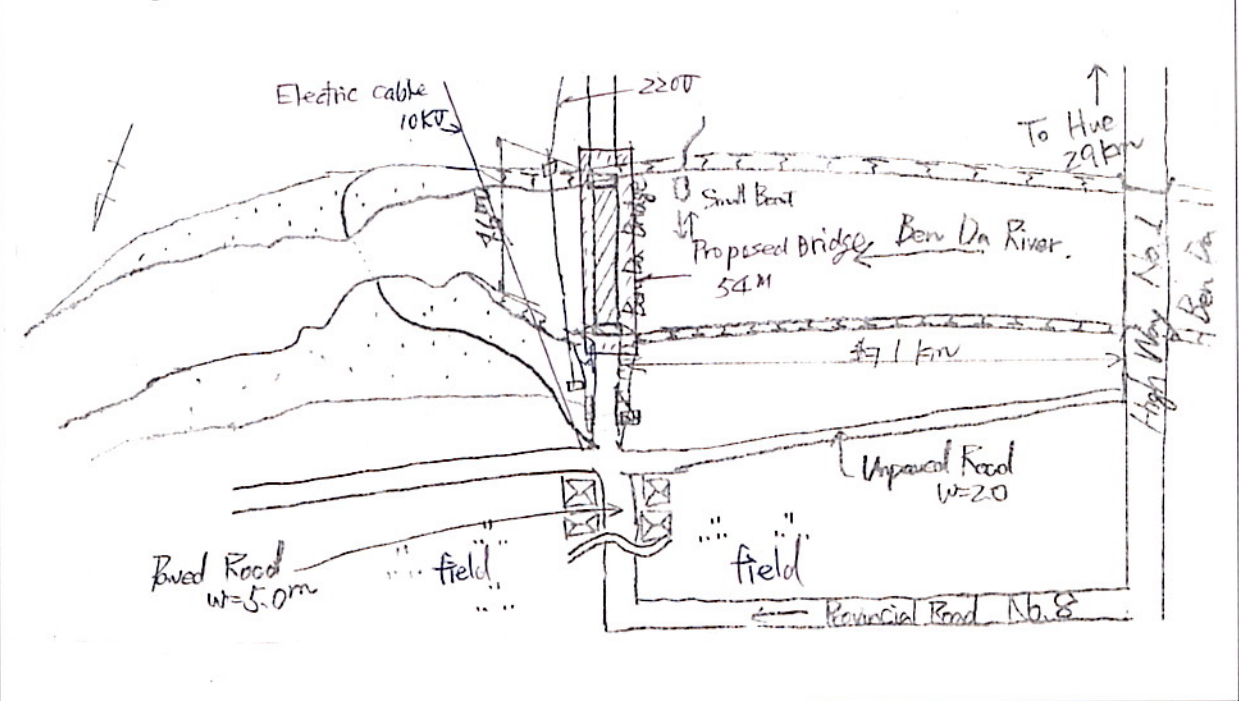 Electric cable
10KV
220V
To Hue
29km
Small Boat
Proposed Bridge
54M
Ben Da River.
Ben Da Bridge
High Way No.1
Ben Da
1 km
Unpaved Road
W=2.0
Paved Road
w=5.0m
field
field
Provincial Road No.8